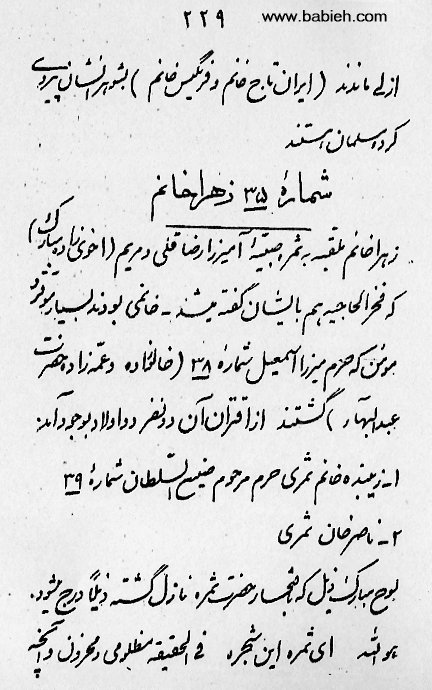 www.babieh.com
۲۲۹
ازلی ماندند (ایران تاج خانم و فرنگیس خانم) بشوهرانشان پیروی
کرده مسلمان هستند
شمارهٔ ۳۵ زهرا خانم
زهرا خانم ملقبه به ثمر صبیهٔ آمیرزا رضا قلی و مریم (اخوی زاده مبارک)
که فخر الحاجیه هم بایشان گفته میشد - خانمی بودند بسیار موقر و
مؤمن که حرم میرزا اسمعیل شمارهٔ ۳۸ (خالوزاده و عمه زاده حضرت
عبدالبهاء) گشتند از اقتران آن دو نفر دو اولاد بوجود آمد:
۱- زیبنده خانم ثمری حرم مرحوم ضیع السلطان شمارهٔ ۳۹
۲- ناصر خان ثمری
لوح مبارک ذیل که بافتخار حضرت ثمره نازل گشته ذیلاً درج میشود.
هو الله ای ثمره این شجره فی الحقیقه مظلومی و محزون و آنچه